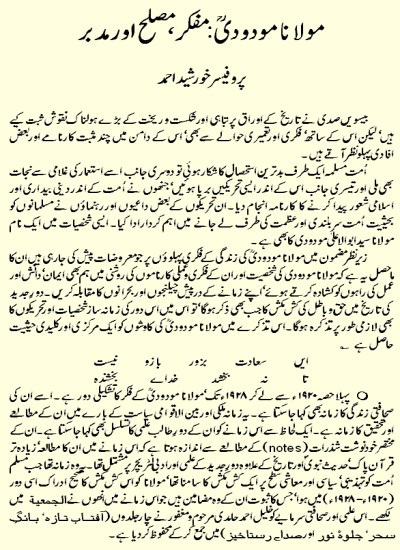 مولانا مودودیؒ: مفکر، مصلح اور مدبر
پروفیسر خورشید احمد
بیسویں صدی نے تاریخ کے اوراق پر تباہی اور شکست و ریخت کے بڑے ہولناک نقوش ثبت کیے
ہیں' لیکن اس کے ساتھ' فکری اور تعمیری حوالے سے بھی' اس کے دامن میں چند مثبت کارنامے اور بعض
افادی پہلو نظر آتے ہیں۔
اُمت مسلمہ ایک طرف بدترین استحصال کا شکار ہوئی تو دوسری جانب اسے استعمار کی غلامی سے نجات
بھی ملی اور تیسری جانب اس کے اندر ایسی تحریکیں برپا ہوئیں' جنھوں نے اُمت کے اندر دینی بیداری اور
اسلامی شعور پیدا کرنے کا کارنامہ انجام دیا۔ ان تحریکوں کے بعض داعیوں اور رہنماؤں نے مسلمانوں کو
بحیثیت اُمت سربلندی اور عظمت کی طرف لے جانے میں اہم کردار ادا کیا۔ ایسی شخصیات میں ایک نام
مولانا سید ابوالاعلیٰ مودودی کا بھی ہے۔
زیرنظر مضمون میں مولانا مودودی کی زندگی کے فکری پہلوؤں پر جو معروضات پیش کی جا رہی ہیں' ان کا
ماحصل یہ ہے کہ مولانا مودودی کی شخصیت اور ان کے فکری و عملی کارناموں کی روشنی میں ہم بھی ایمان' دانش اور
عمل کی راہوں کو کشادہ کرتے ہوئے' اپنے زمانے کے درپیش چیلنجوں اور بحرانوں کا مقابلہ کریں۔ دورِ جدید
کی تاریخ میں حق و باطل کی کش مکش کا جب بھی ذکر ہوگا' تو اس میں اس دور کی زمانہ ساز شخصیات اور تحریکوں کا
بھی لازمی طور پر تذکرہ ہوگا۔ اس تذکرے میں مولانا مودودی کی کاوشوں کو ایک مرکزی اور کلیدی حیثیت
حاصل ہے ؎
ایں سعادت بزور بازو نیست
تا نہ بخشد خدائے بخشندہ
پہلا حصہ ۱۹۲۰ء سے لے کر ۱۹۲۸ء تک' مولانا مودودیؒ کے فکر کا تشکیلی دور ہے۔ اسے ان کی
صحافتی زندگی کا زمانہ بھی کہا جا سکتا ہے۔ یہ زمانہ ملکی اور بین الاقوامی سیاست کے بارے میں ان کے مطالعے
اور تحقیق کا زمانہ ہے۔ ایک لحاظ سے اس زمانے کو ان کے دورِ طالب علمی کا تسلسل بھی کہا جا سکتا ہے۔ ان کے
مختصر خود نوشت شذرات (notes) کے مطالعے سے اندازہ ہوتا ہے کہ اس زمانے میں ان کا مطالعہ زیادہ تر
قرآن پاک' حدیث نبویؐ اور تاریخ کے علاوہ دورِ جدید کے علمی اور ادبی لٹریچر پر مشتمل تھا۔ یہ وہ زمانہ تھا جب مسلم
اُمت کو تہذیبی' سیاسی اور معاشی سطح پر ایک کش مکش کا سامنا تھا' مولانا کو اس کش مکش کا صحیح ادراک اسی دور
(۱۹۲۰ء-۱۹۲۸ء) میں ہوا' جس کا ثبوت ان کے وہ مضامین ہیں جو اس زمانے میں انھوں نے الجمعیۃ میں
لکھے۔ اس علمی اور صحافتی سرمایے کو خلیل احمد حامدی مرحوم و مغفور نے چار جلدوں (آفتابِ تازہ' بانگِ
سحر' جلوۂ نور اور صدائے رستاخیز) میں جمع کر کے محفوظ کر دیا ہے۔